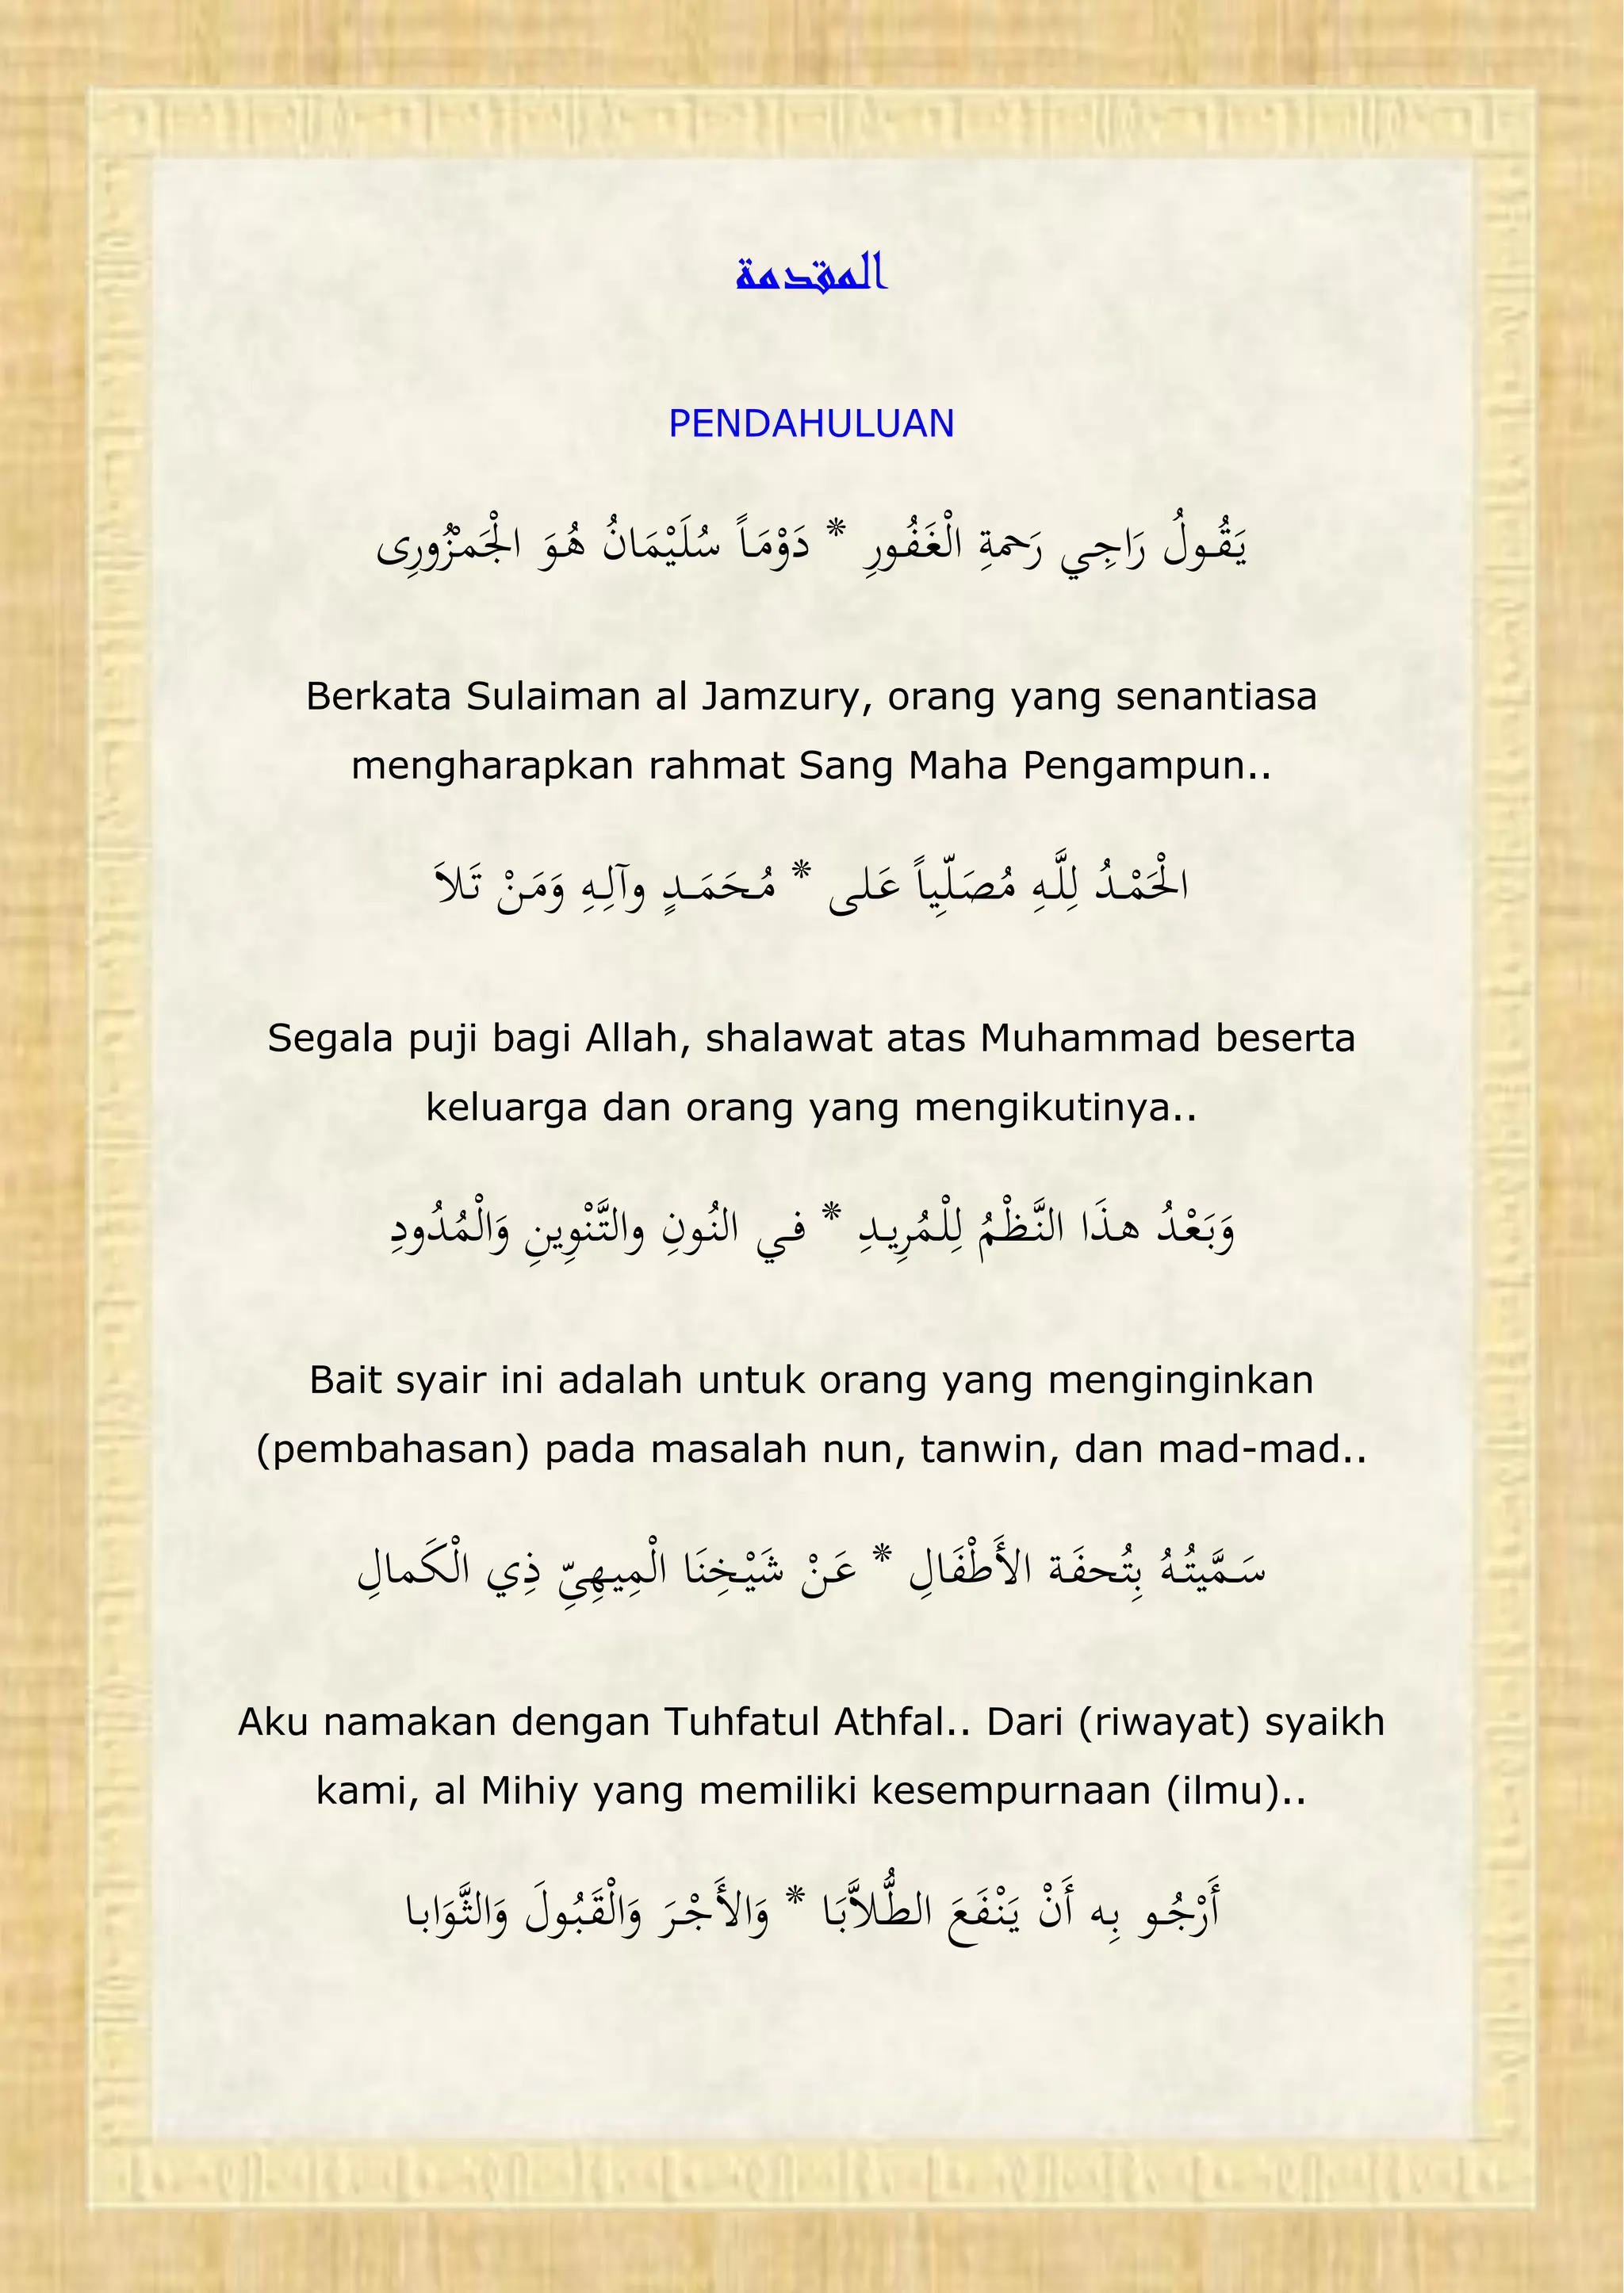 المقدمة
PENDAHULUAN
يَقُـولُ رَاجِـي رَحمةِ الْغَفُـورِ * دَوْمَـاً سُلَيْمَانُ هُـوَ الْجَمْزُورِى
Berkata Sulaiman al Jamzury, orang yang senantiasa
mengharapkan rahmat Sang Maha Pengampun..
الْحَمْـدُ لِلَّـهِ مُصَلِّيـاً عَلى * مُـحَـمَـدٍ وآلِـهِ وَمَـنْ تَـلاَ
Segala puji bagi Allah, shalawat atas Muhammad beserta
keluarga dan orang yang mengikutinya..
وَبَعْـدُ هـذَا النَّظْـمُ لِلْمُرِيـدِ * فـي النُـونِ والتَّنْوِينِ وَالْمُدُودِ
Bait syair ini adalah untuk orang yang menginginkan
(pembahasan) pada masalah nun, tanwin, dan mad-mad..
سَـمَّيتُـهُ بِتُـحفَـة الأَطْفَـالِ * عَـنْ شَيْـخِنَا الْمِيـهِيِّ ذِي الْكَمالِ
Aku namakan dengan Tuhfatul Athfal.. Dari (riwayat) syaikh
kami, al Mihiy yang memiliki kesempurnaan (ilmu)..
أَرْجُـو بِـه أَنْ يَنْفَـعَ الطُّـلاَّبَـا * وَالأَجْـرَ وَالْقَبُـولَ وَالثَّوَابـا